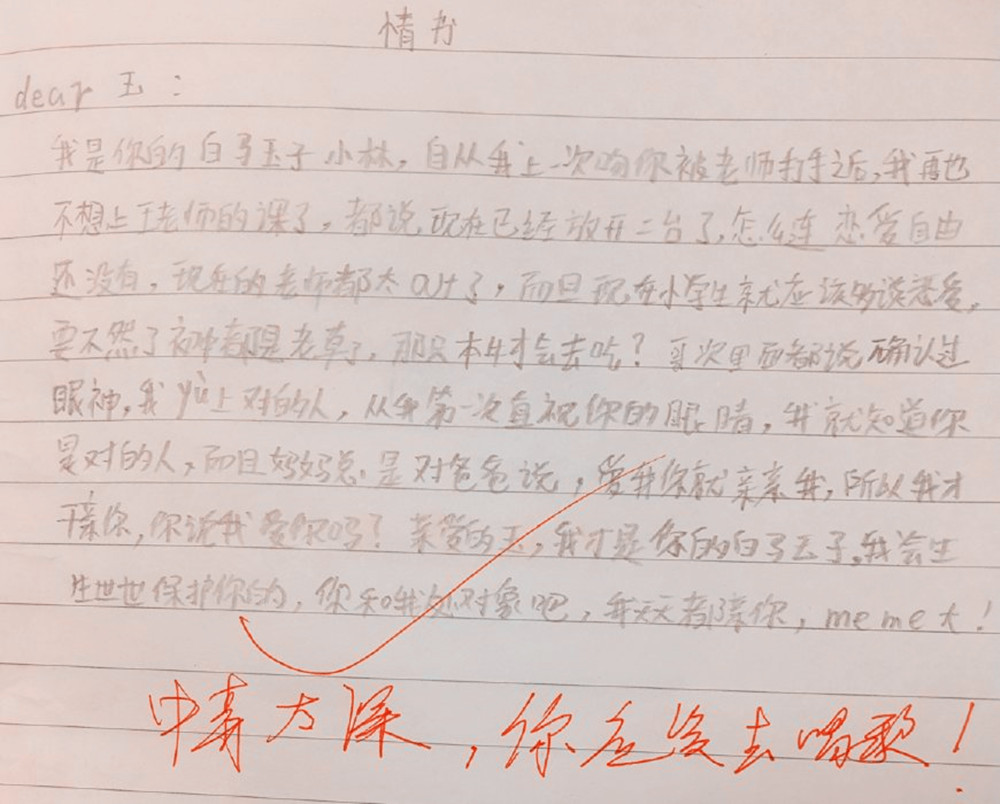 情书
dear 玉：
我是你的白马王子小林，自从我上一次吻你被老师打手之后，我再也
不想上王老师的课了，都说现在已经放开二台了，怎么连恋爱自由
还没有，现在的老师都太out了，而且现在小学生就应该多谈恋爱，
要不然了初中都是老草了，那只本牛才会去吃？耳次里面都说确认过
眼神，我yù上对的人，从我第一次直视你的眼睛，我就知道你
是对的人，而且妈妈总是对爸爸说，爱我你就亲亲我，所以我才
亲你，你说我爱你吗？亲爱的玉，我才是你的白马王子，我会生
生世世保护你的，你和我处对象吧，我天天都亲你，meme大！
中毒太深，你应该去唱歌！